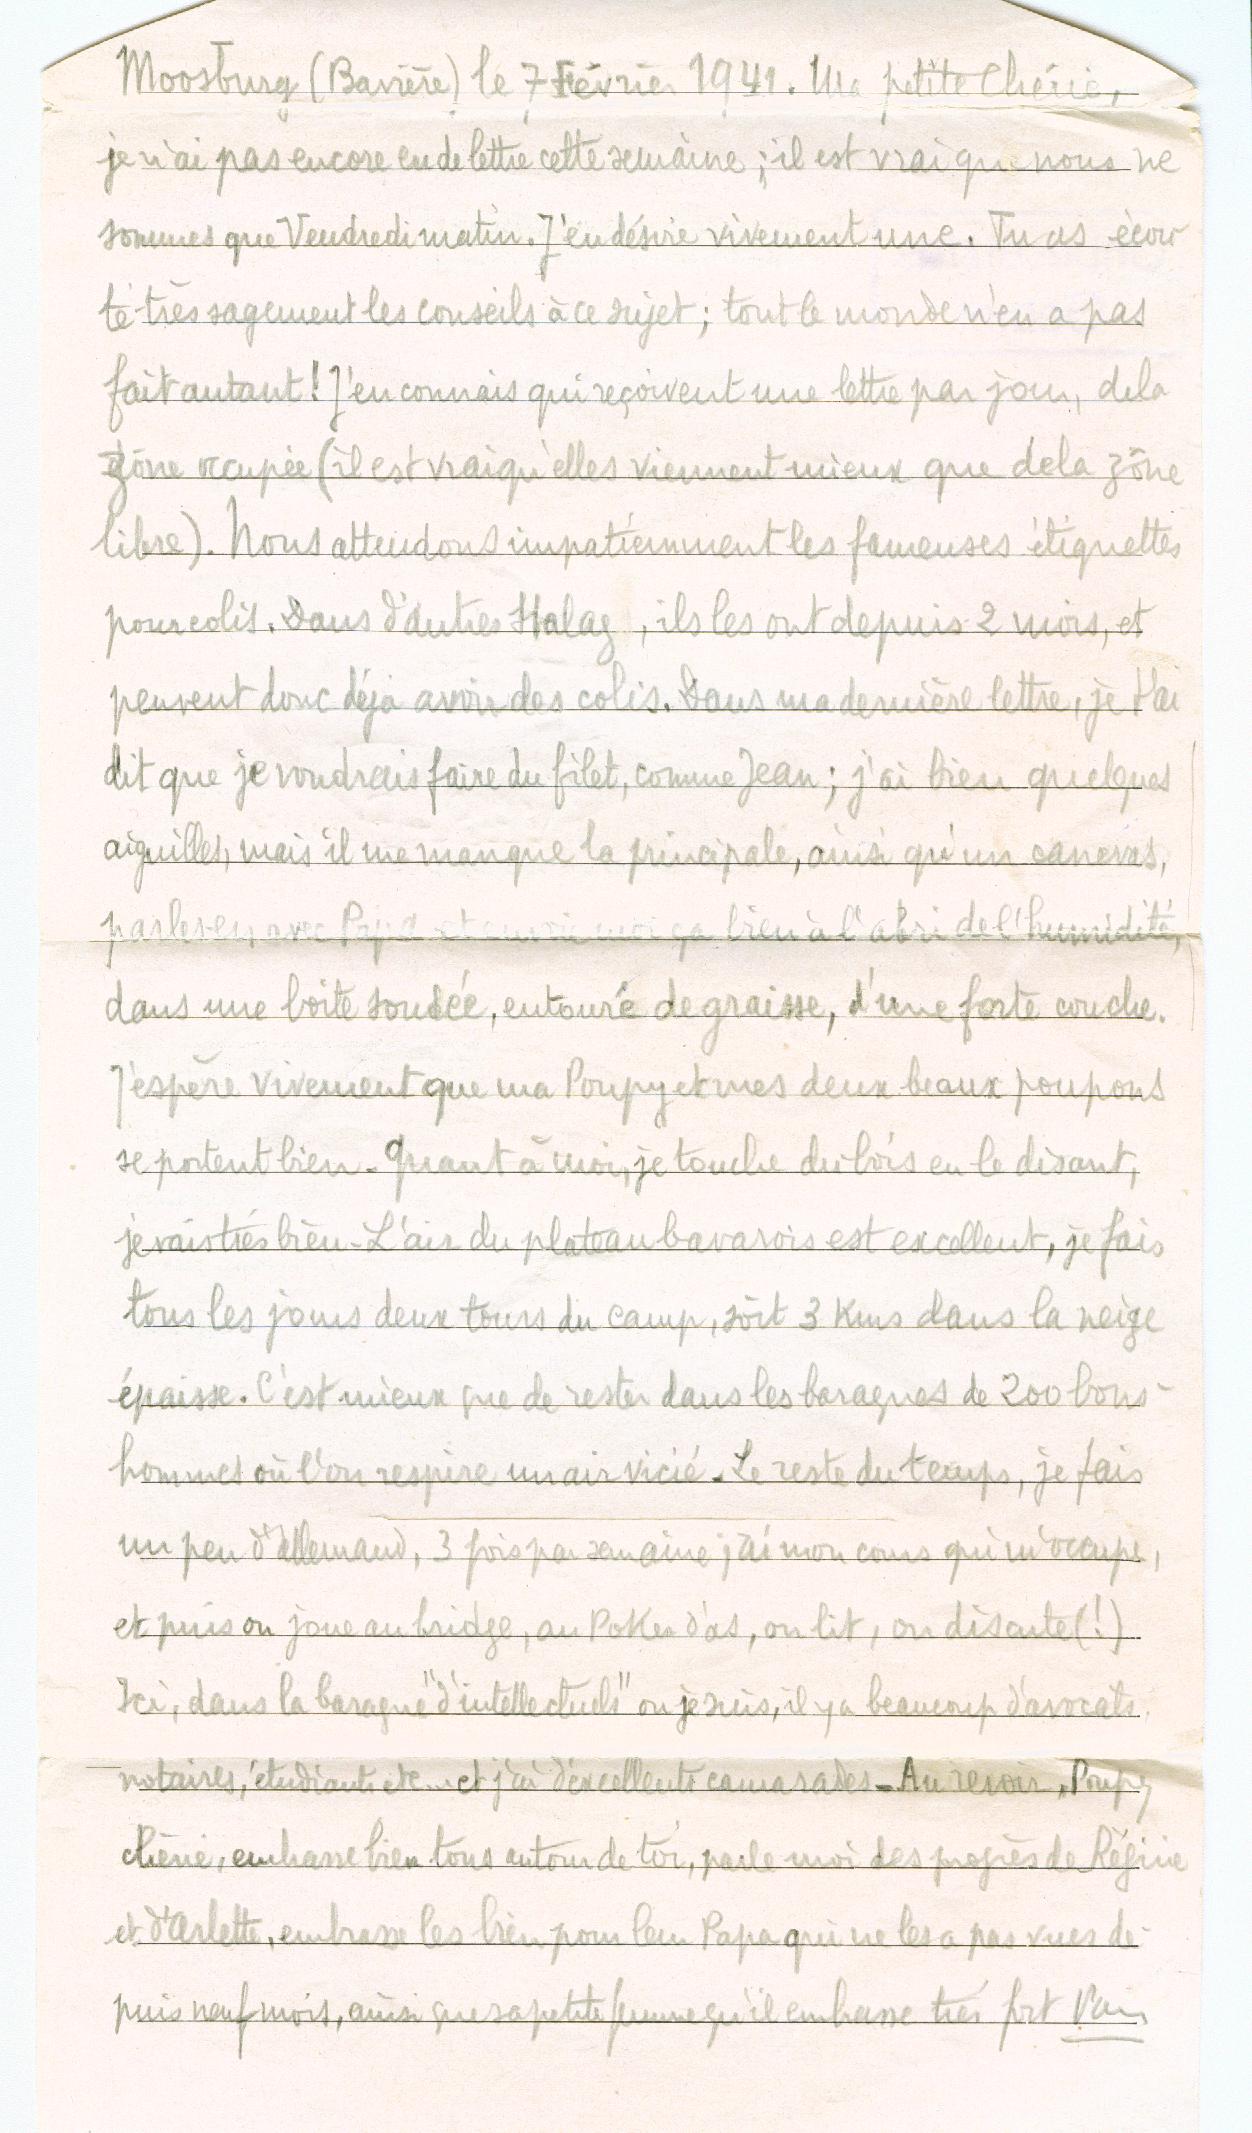 Moosburg (Bavière) le 7 Février 1941. Ma petite Chérie,
je n'ai pas encore eu de lettre cette semaine ; il est vrai que nous ne
sommes que Vendredi matin. J'en désire vivement une. Tu as écou
té très sagement les conseils à ce sujet ; tout le monde n'en a pas
fait autant ! J'en connais qui reçoivent une lettre par jour, de la
zône occupée (il est vrai qu'elles viennent mieux que de la zône
libre). Nous attendons impatiemment les fameuses étiquettes
pour colis. Dans d'autres Stalag, ils les ont depuis 2 mois, et
peuvent donc déjà avoir des colis. Dans ma dernière lettre, je t'ai
dit que je voudrais faire du filet, comme Jean ; j'ai bien quelques
aiguilles, mais il me manque la principale, ainsi qu'un canevas,
parles-en avec Papa et envoie moi ça bien à l'abri de l'humidité,
dans une boite soudée, entouré de graisse, d'une forte couche.
J'espère vivement que ma Poupy et mes deux beaux poupons
se portent bien - Quant à moi, je touche du bois en le disant,
je vais très bien - L'air du plateau bavarois est excellent, je fais
tous les jours deux tours du camp, soit 3 Kms dans la neige
épaisse. C'est mieux que de rester dans les baraques de 200 bons-
hommes où l'on respire un air vicié - Le reste du temps, je fais
un peu d'allemand, 3 fois par semaine j'ai mon cours qui m'occupe,
et puis on joue au bridge, au Poker d'as, on lit, on discute (!)
Ici, dans la baraque "d'intellectuels" ou je suis, il y a beaucoup d'avocats,
notaires, étudiants etc... et j'ai d'excellents camarades - Au revoir, Poupy
chérie, embrasse bien tous autour de toi, parle moi des progrès de Régine
et d'Arlette, embrasse les bien pour leur Papa qui ne les a pas vues de-
puis neuf mois, ainsi que sa petite femme qu'il embrasse très fort